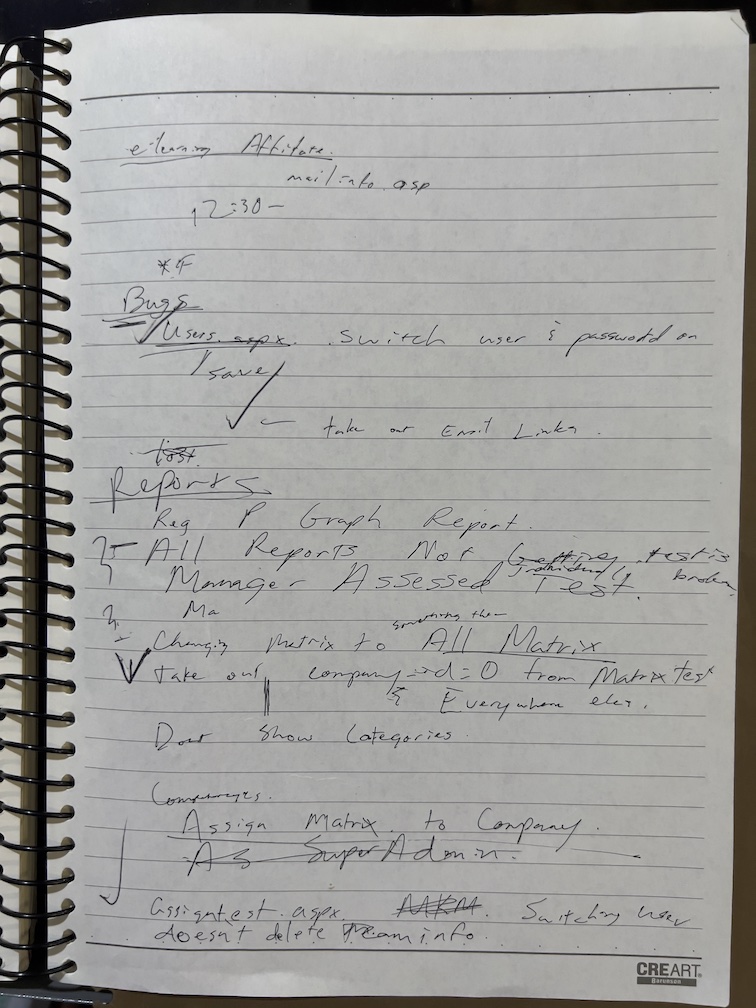 eLearning Affiliate.
mailinfo.asp
12:30-
Bugs
Users.aspx. Switch user & password on
save
← take out Email Links.
Reports
Reg P Graph Report.
All Reports Not Getting test is
Individually broken
Manager Assessed Test.
Ma
something the
Changing Matrix to All Matrix
Take out company id = 0 from Matrix Test
& Everywhere else.
Show Categories.
Assign Matrix to Company.
As SuperAdmin.
Assigntest.aspx. Switching user
doesn't delete Team info.
CREART
Barunson